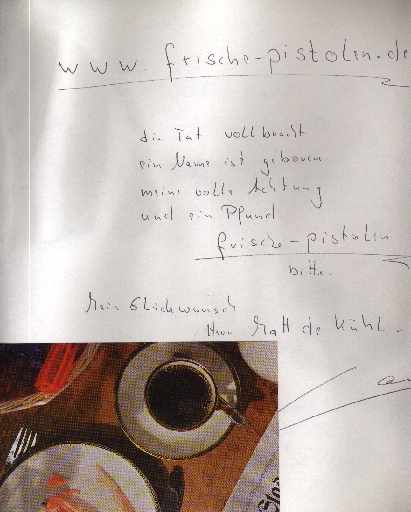 www.frische-pistolen.de
die Tat vollbracht
ein Name ist geboren
meine volle Achtung
und ein Pfund
frische-pistolen
bitte.
Mein Glückwunsch
Herr Matt de Kühl.